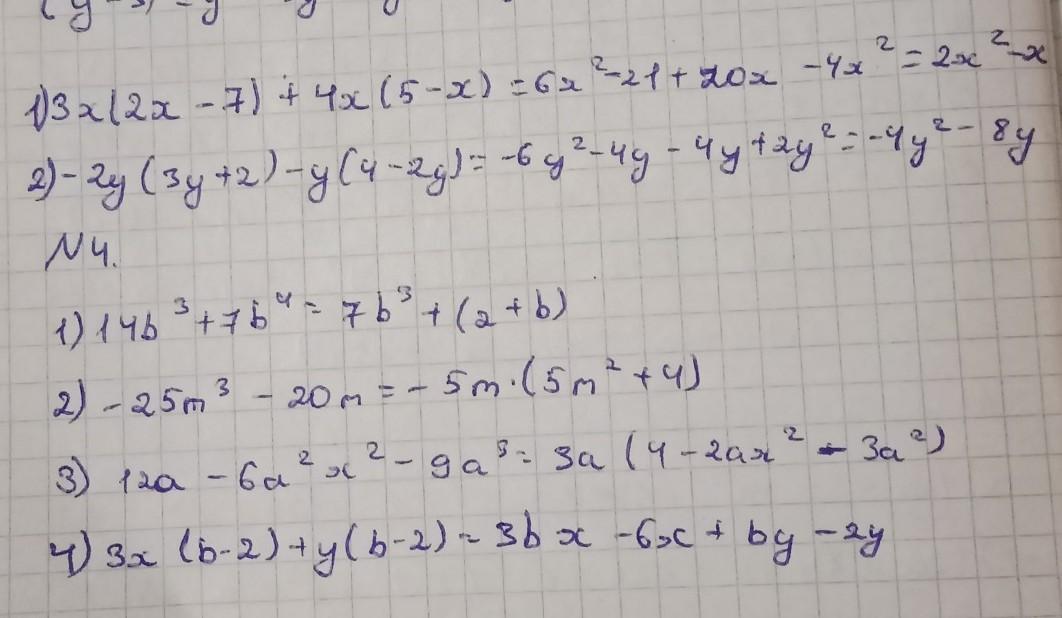 1) 3x(2x - 7) + 4x(5 - x) = 6x² - 21 + 20x - 4x² = 2x² - x
2) - 2y(3y + 2) - y(4 - 2y) = -6y² - 4y - 4y + 2y² = -4y² - 8y
N4.
1) 14b³ + 7b⁴ = 7b³ + (2 + b)
2) - 25m³ - 20m = - 5m · (5m² + 4)
3) 12a - 6a²x² - 9a³ = 3a (4 - 2ax² - 3a²)
4) 3x (b - 2) + y(b - 2) = 3bx - 6x + by - 2y